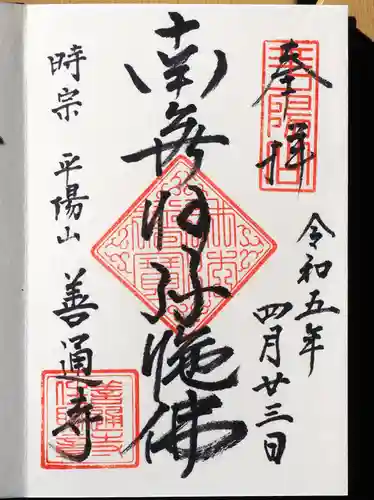 奉拝
令和五年
四月廿三日
南無阿弥陀佛
時宗 平陽山 善通寺